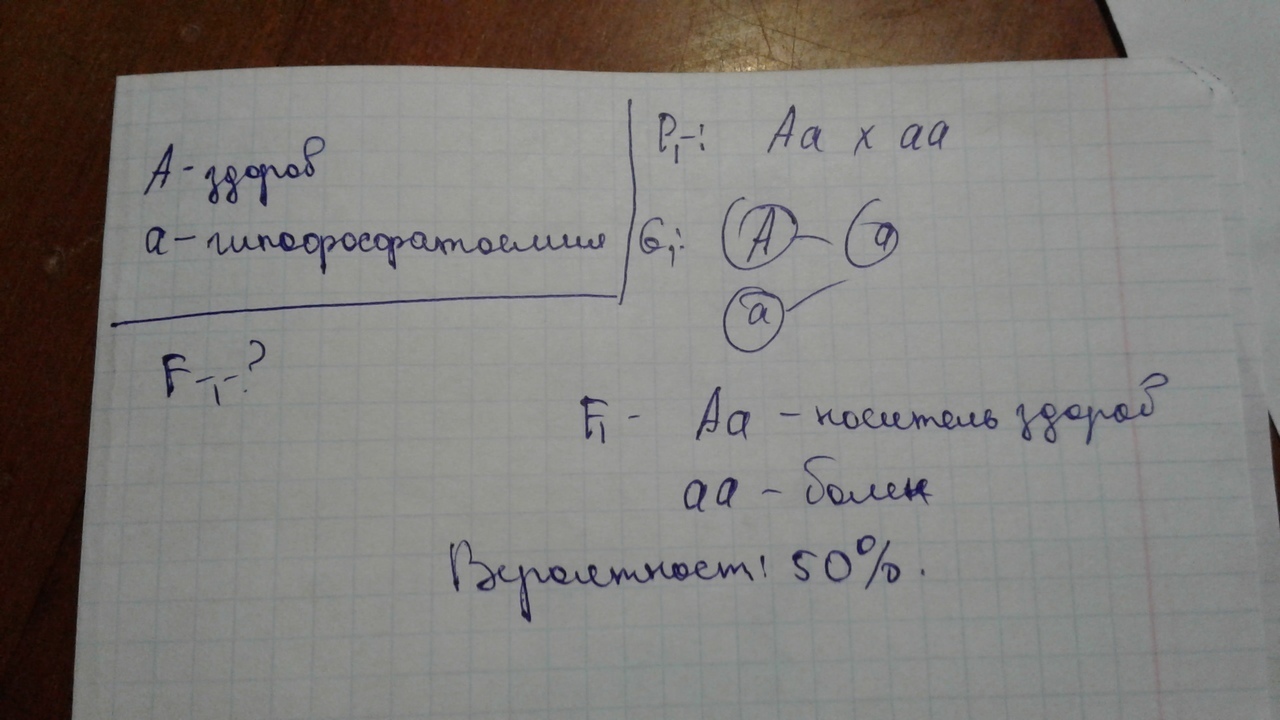 А - здоров
а - гипофосфатоемия
F₁ - ?
P₁ - : Aa x aa
G₁: A a
a
F₁ - Aa - носитель здоров
aa - болен
Вероятност: 50%.